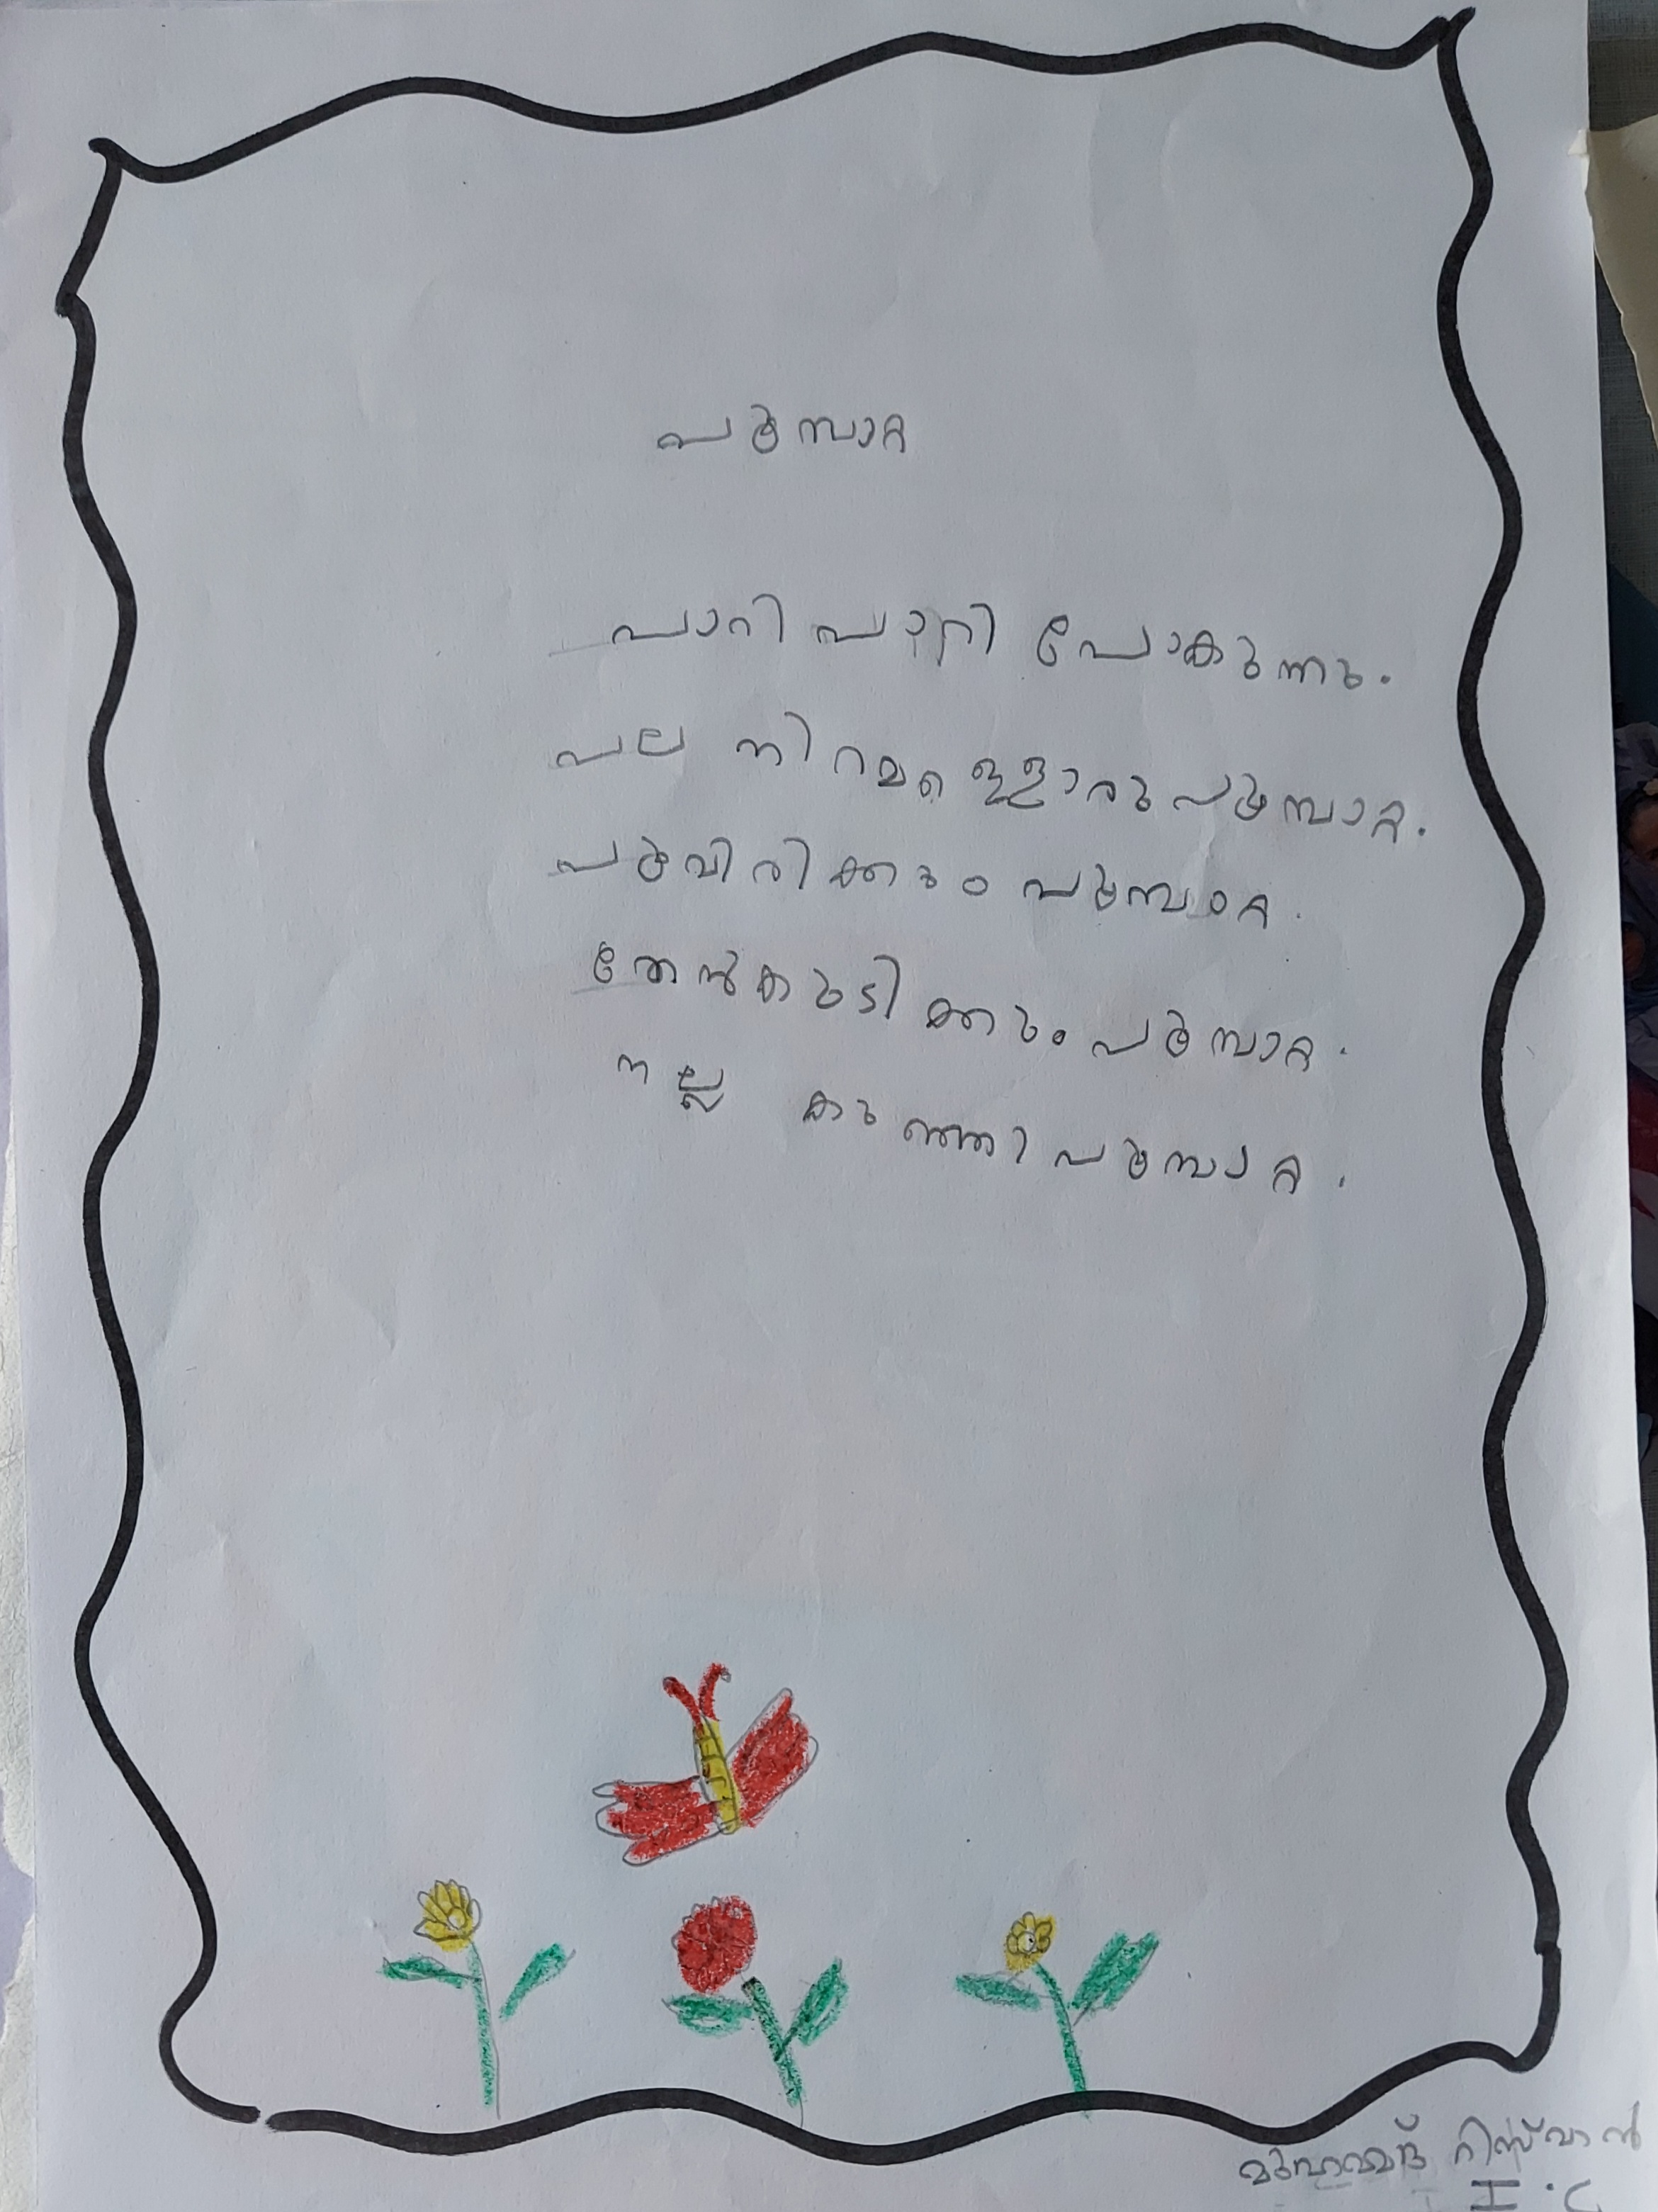 പൂമ്പാറ്റ
പാറി പാറി പോകുന്നു.
പല നിറമുള്ളൊരു പൂമ്പാറ്റ.
പൂവിരിക്കും പൂമ്പാറ്റ.
തേൻകുടിക്കും പൂമ്പാറ്റ.
നല്ല കുഞ്ഞി പൂമ്പാറ്റ.
മുഹമ്മദ് റിസ്‌വാൻ
I.C